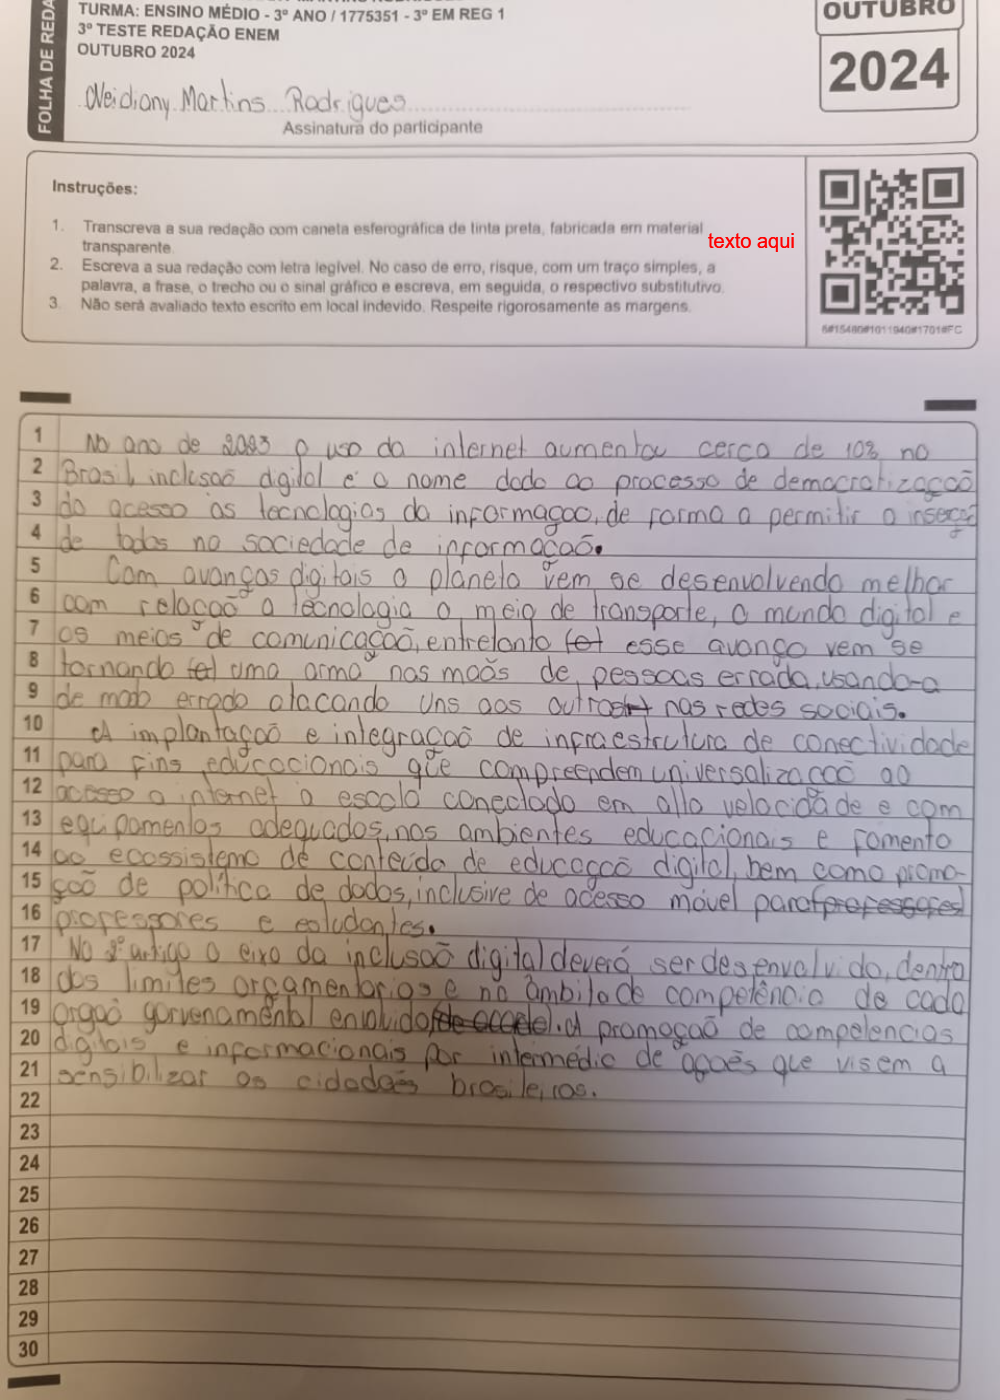 FOLHA DE REDA
TURMA: ENSINO MÉDIO - 3º ANO / 1775351 - 3º EM REG 1
3º TESTE REDAÇÃO ENEM
OUTUBRO 2024
Neidiany Martins Rodrigues
Assinatura do participante
OUTUBRO
2024
Instruções:
1. Transcreva a sua redação com caneta esferográfica de tinta preta, fabricada em material
transparente.
2. Escreva a sua redação com letra legível. No caso de erro, risque, com um traço simples, a
palavra, a frase, o trecho ou o sinal gráfico e escreva, em seguida, o respectivo substitutivo.
3. Não será avaliado texto escrito em local indevido. Respeite rigorosamente as margens.
texto aqui
1 No ano de 2023 o uso da internet aumentou cerca de 10% no
2 Brasil, inclusaõ digital e o nome dado ao processo de democratizaçaõ
3 do acesso as tecnologias da informaçao, de forma a permitir a inserção
4 de todos na sociedade de informaçaõ.
5 Com avanços digitais o planeta vem se desenvolvendo melhor
6 com relaçaõ a tecnologia o meio de transporte, o mundo digital e
7 os meios de comunicaçaõ, entretanto esse avanço vem se
8 tornando uma arma nas maõs de pessoas errada, usando-a
9 de modo errado atacando uns aos outros nas redes sociais.
10 A implantaçaõ e integraçaõ de infraestrutura de conectividade
11 para fins educacionais que compreendem universalizaçaõ ao
12 acesso a internet a escola conectado em alta velocidade e com
13 equipamentos adequados, nos ambientes educacionais e fomento
14 ao ecossistema de conteúdo de educaçaõ digital, bem como promo-
15 çaõ de política de dados, inclusive de acesso móvel para professores
16 professores e estudantes.
17 No 2º artigo o eixo da inclusaõ digital deverá ser desenvolvido, dentro
18 dos limites orçamentarios e no âmbito de competência de cada
19 orgaõ gorvenamental envolvido. A promoçaõ de competencias
20 digitais e informacionais por intermédio de açoẽs que visem a
21 sensibilizar os cidadaẽs brasileiros.
22
23
24
25
26
27
28
29
30